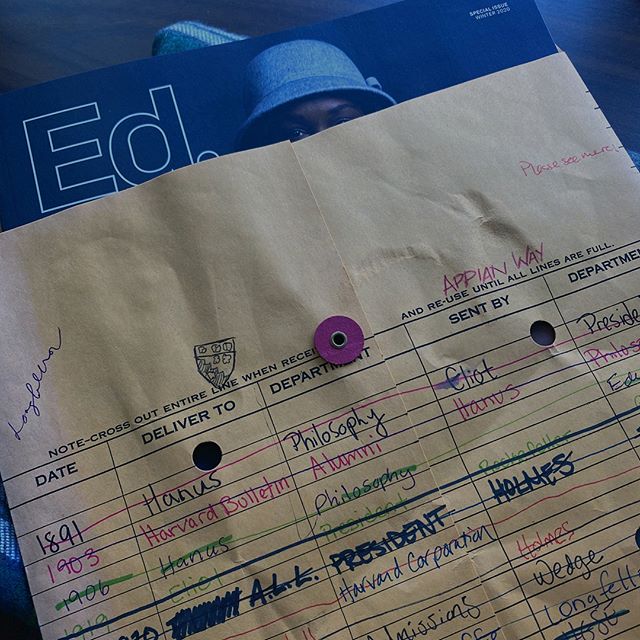 SPECIAL ISSUE
WINTER 2020
Ed.
Please see
APPIAN WAY
NOTE-CROSS OUT ENTIRE LINE WHEN AND RE-USE UNTIL ALL LINES ARE FULL.
DATE DELIVER TO DEPARTMENT SENT BY DEPARTMENT
1891 Hanus Philosophy Eliot
1903 Harvard Bulletin Alumni Hanus
1906 Hanus Philosophy Rockefeller
1919 Eliot President HOLMES
A.L.L. PRESIDENT
Harvard Corporation Holmes
Admissions Wedge